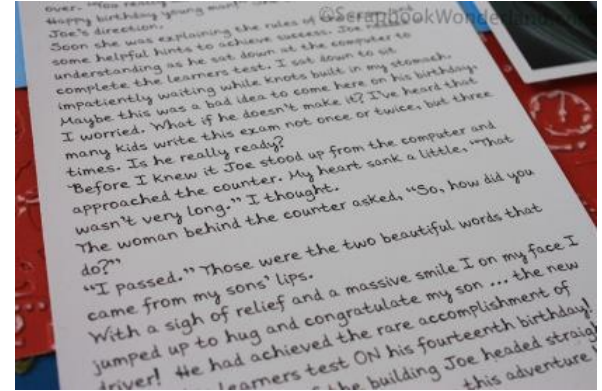 over. "You really
Happy birthday young man!"
Joe's direction.
Soon she was explaining the rules of
some helpful hints to achieve success. Joe
understanding as he sat down at the computer to
complete the learners test. I sat down to sit
impatiently waiting while knots built in my stomach.
Maybe this was a bad idea to come here on his birthday.
I worried. What if he doesn't make it? I've heard that
many kids write this exam not once or twice, but three
times. Is he really ready?
Before I knew it Joe stood up from the computer and
approached the counter. My heart sank a little, "That
wasn't very long." I thought.
The woman behind the counter asked, "So, how did you
do?"
"I passed." Those were the two beautiful words that
came from my sons' lips.
With a sigh of relief and a massive smile I on my face I
jumped up to hug and congratulate my son ... the new
driver! He had achieved the rare accomplishment of
learners test ON his fourteenth birthday!
the building Joe headed straight
this adventure
©ScrapbookWonderland.com